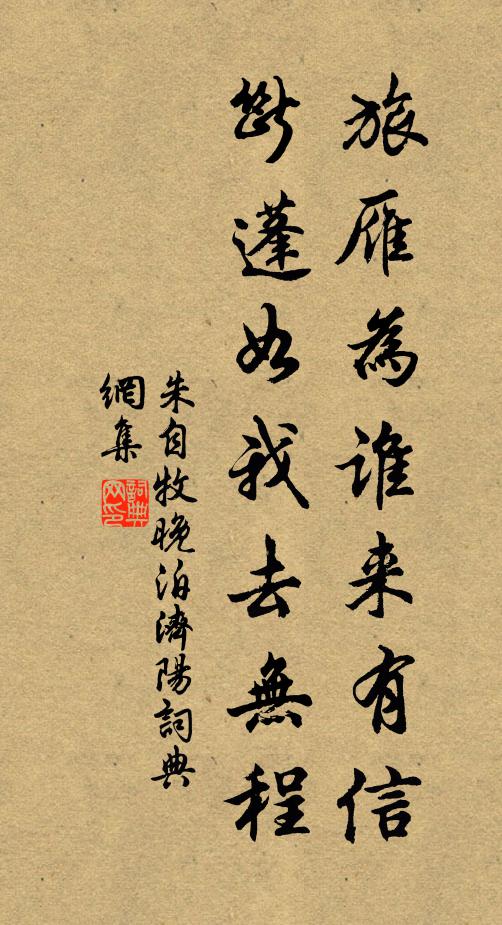 旅雁為谁来有信
斷蓬如我去無程
朱自牧晚泊濟陽詞典
網集
詞典
网印